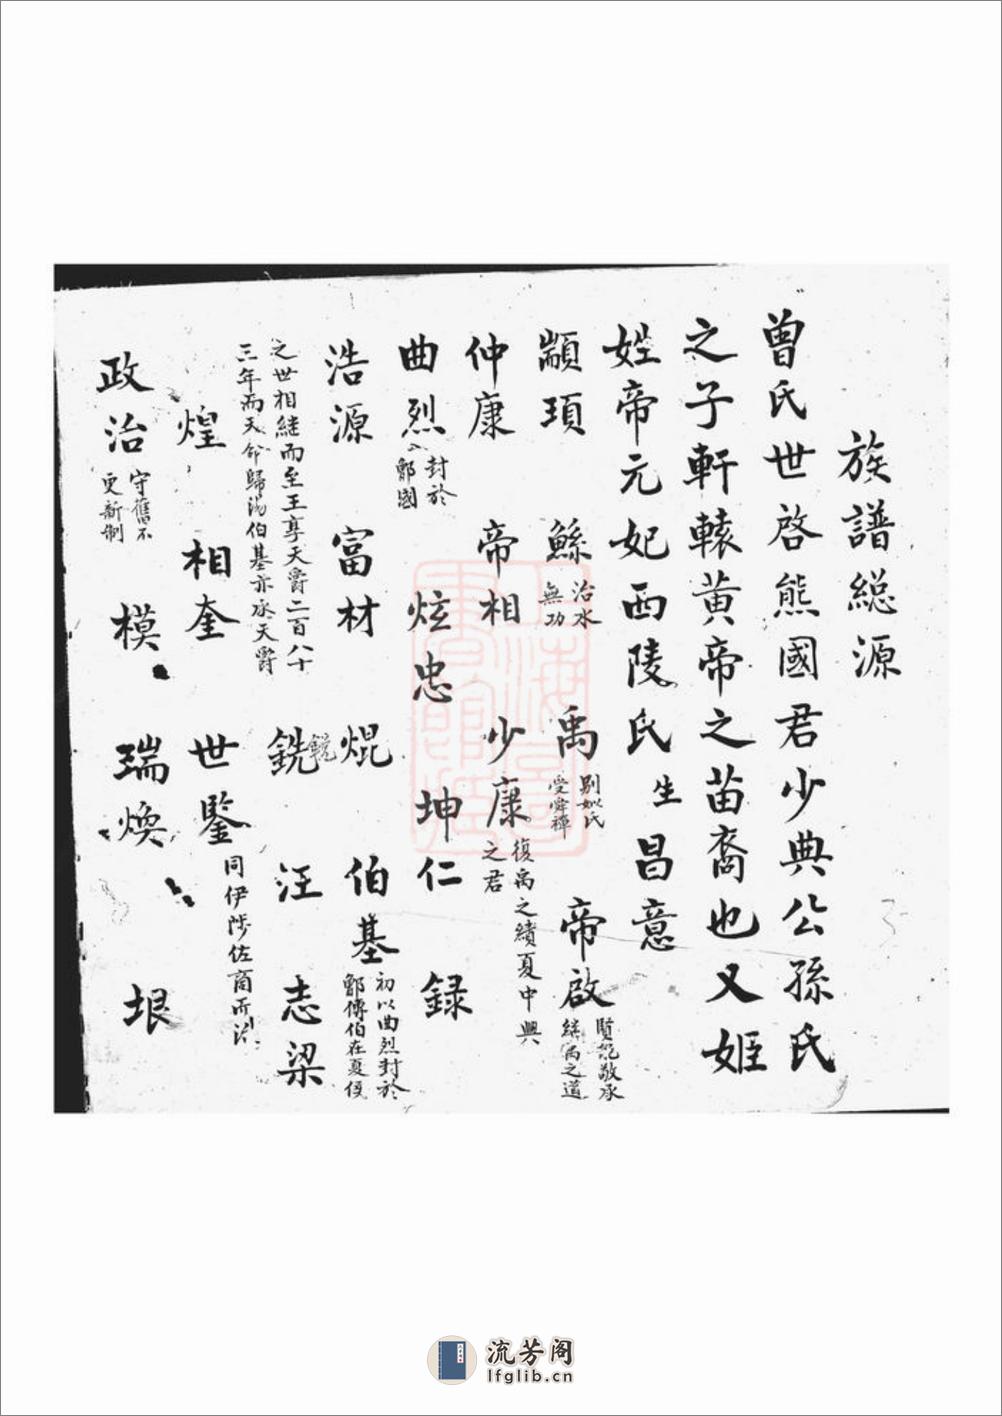 族譜総源
曾氏世啓熊國君少典公孫氏
之子軒轅黃帝之苗裔也又姬
姓帝元妃西陵氏生昌意
顓頊 鯀 治水無功 禹 别姒氏受舜禪 帝啟 賢能敬承継禹之道
仲康 帝相 少康 復禹之績夏中興之君
曲烈 封於鄫國 炫忠 坤仁 録
浩源 富材 焜 伯基 初以曲烈封於鄫傳伯在夏侵
之世相継而至王享天爵二百八十
三年而天命歸湯伯基亦承天爵
銑 鏡 汪 志梁
煌 相奎 世鑒 同伊陟佐商而治
政治 守舊不更新制 模 瑞煥 垠
上海圖書館藏
流芳阁
lfglib.cn